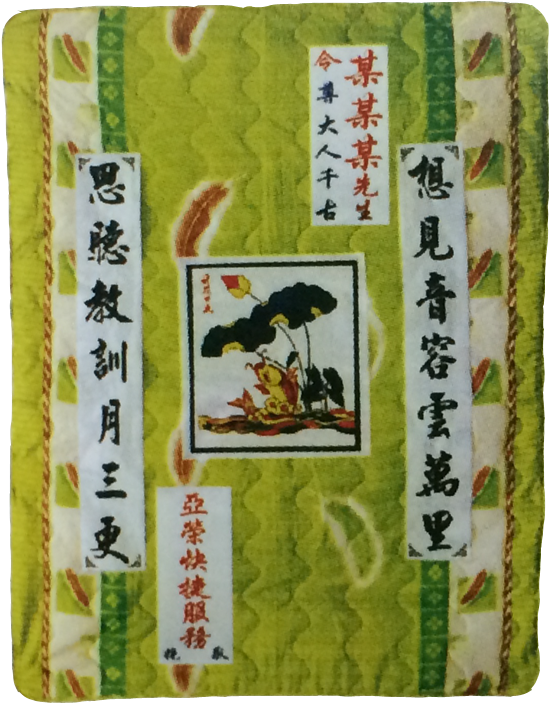 某某某先生
令尊大人千古
想見音容雲萬里
思聽教訓月三更
亞榮快捷服務
敬輓